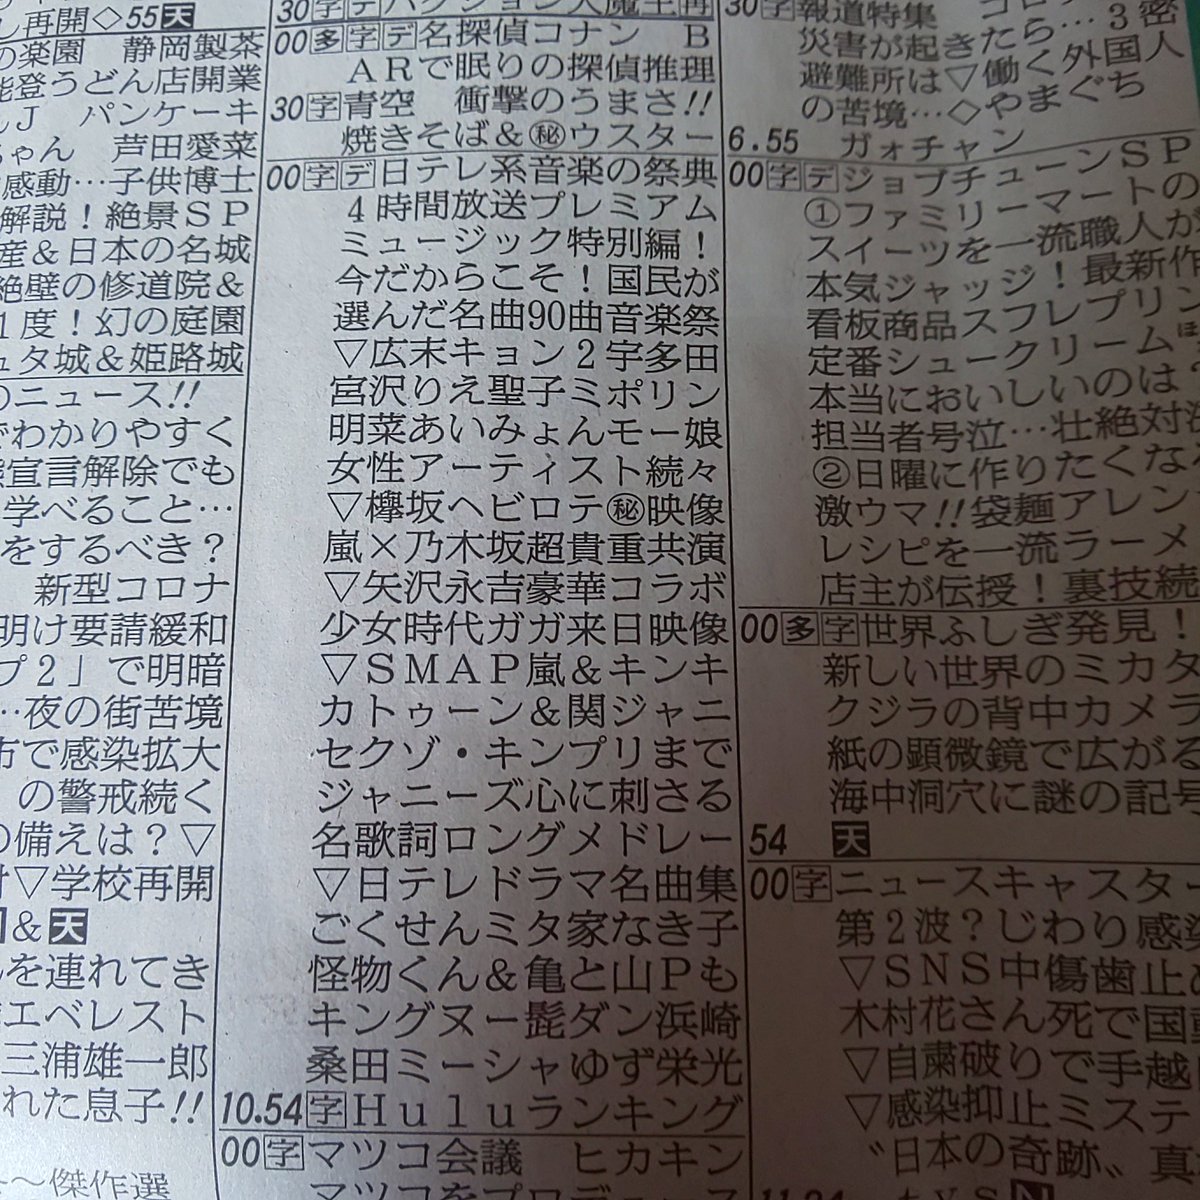 し再開◇55天
の楽園 静岡製茶
能登うどん店開業
パンケーキ
ちゃん 芦田愛菜
感動…子供博士
解説！絶景ＳＰ
産＆日本の名城
絶壁の修道院＆
1度！幻の庭園
ュタ城＆姫路城
のニュース!!
でわかりやすく
態宣言解除でも
学べること…
をするべき？
新型コロナ
明け要請緩和
プ２」で明暗
…夜の街苦境
市で感染拡大
の警戒続く
の備えは？▽
▽学校再開
＆天
を連れてき
エベレスト
三浦雄一郎
れた息子!!
～傑作選
30字デハクション大魔王再
00多字デ名探偵コナン Ｂ
ＡＲで眠りの探偵推理
30字青空 衝撃のうまさ!!
焼きそば＆㊙ウスター
00字デ日テレ系音楽の祭典
４時間放送プレミアム
ミュージック特別編！
今だからこそ！国民が
選んだ名曲90曲音楽祭
▽広末キョン２宇多田
宮沢りえ聖子ミポリン
明菜あいみょんモー娘
女性アーティスト続々
▽欅坂ヘビロテ㊙映像
嵐×乃木坂超貴重共演
▽矢沢永吉豪華コラボ
少女時代ガガ来日映像
▽ＳＭＡＰ嵐＆キンキ
カトゥーン＆関ジャニ
セクゾ・キンプリまで
ジャニーズ心に刺さる
名歌詞ロングメドレー
▽日テレドラマ名曲集
ごくせんミタ家なき子
怪物くん＆亀と山Ｐも
キングヌー髭ダン浜崎
桑田ミーシャゆず栄光
10.54字Ｈｕｌｕランキング
00字マツコ会議 ヒカキン
マツコをプロデュース
30字報道特集 コロ
災害が起きたら…３密
避難所は▽働く外国人
の苦境…◇やまぐち
6.55 ガォチャン
00字デジョブチューンＳＰ
①ファミリーマートの
スイーツを一流職人が
本気ジャッジ！最新作
看板商品スフレプリン
定番シュークリーム
本当においしいのは？
担当者号泣…壮絶対決
②日曜に作りたくなる
激ウマ!!袋麺アレン
レシピを一流ラーメ
店主が伝授！裏技続
00多字世界ふしぎ発見！
新しい世界のミカタ
クジラの背中カメラ
紙の顕微鏡で広がる
海中洞穴に謎の記号
54 天
00字ニュースキャスター
第２波？じわり感染
▽ＳＮＳ中傷歯止
木村花さん死で国
▽自粛破りで手越
▽感染抑止ミステ
〝日本の奇跡〟真